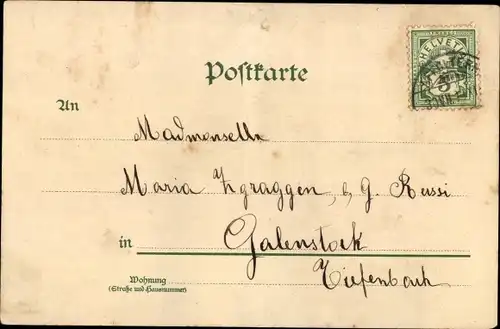 HELVETIA
FRANCO
5
Postkarte
An
Madmonselle
Maria Zgraggen, b. G. Russi
in Galenstock
Tiefenbach
Wohnung
(Straße und Hausnummer)